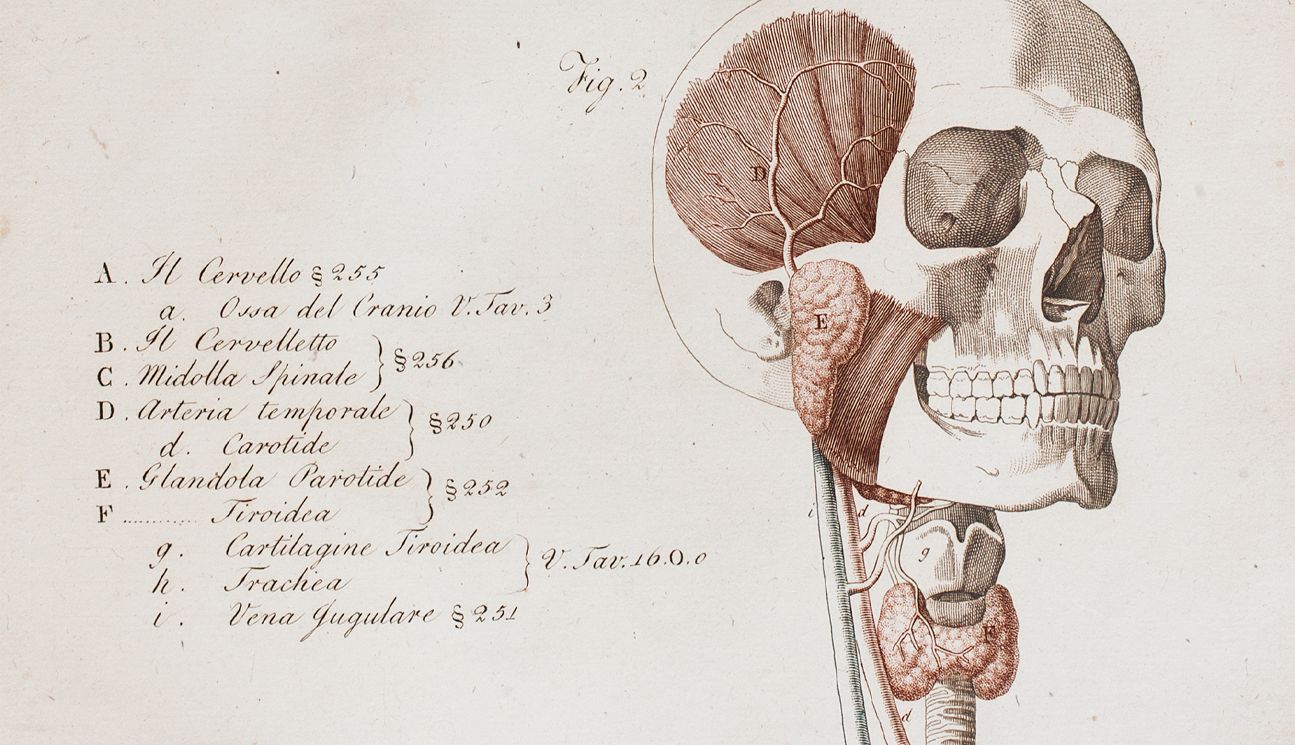 Fig. 2
A. Il Cervello § 255
a. Ossa del Cranio V. Tav. 3
B. Il Cervelletto
C. Midolla Spinale
§ 256
D. Arteria temporale
d. Carotide
§ 250
E. Glandola Parotide
F ............ Tiroidea
§ 252
g. Cartilagine Tiroidea
h. Trachea
V. Tav. 16.0.0
i. Vena Gugulare § 251
D
E
i
d
g
F
d